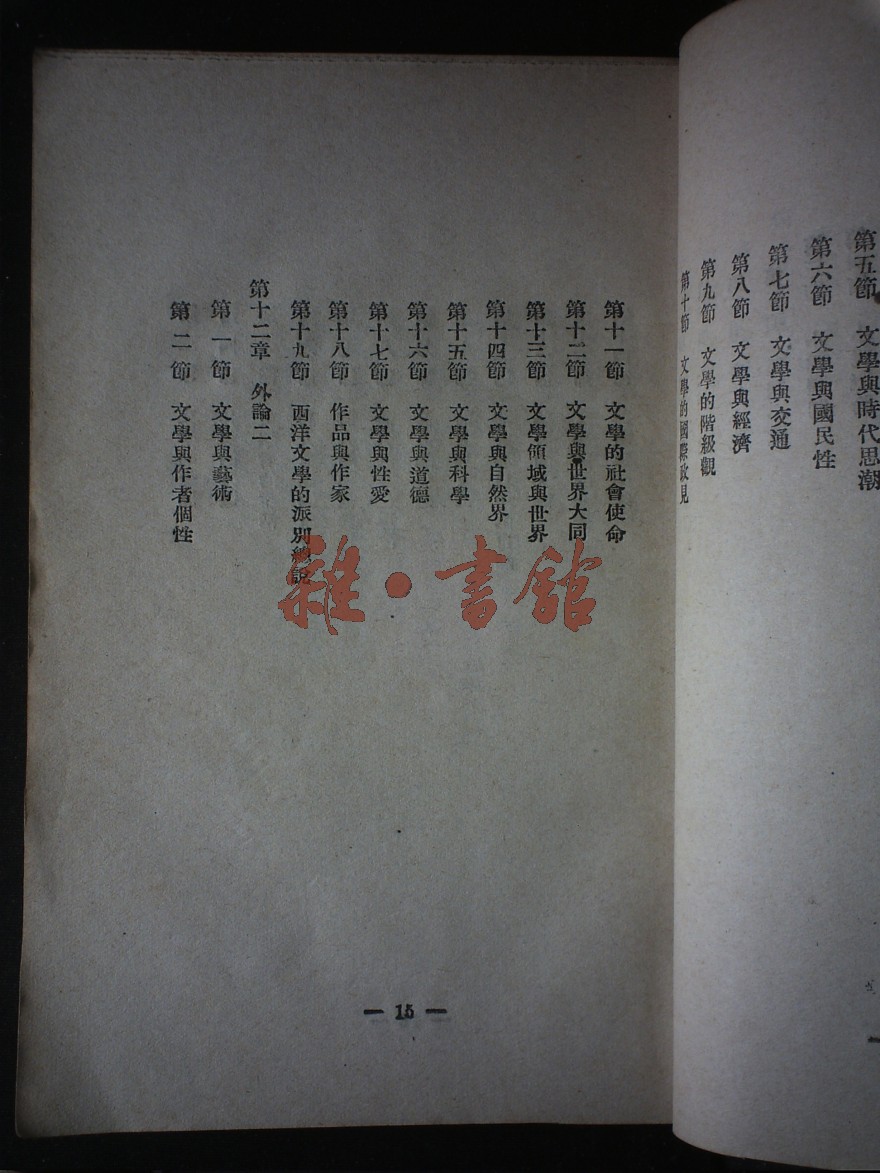 第五節 文學與時代思潮
第六節 文學與國民性
第七節 文學與交通
第八節 文學與經濟
第九節 文學的階級觀
第十節 文學的國際政見
第十一節 文學的社會使命
第十二節 文學與世界大同
第十三節 文學領域與世界
第十四節 文學與自然界
第十五節 文學與科學
第十六節 文學與道德
第十七節 文學與性愛
第十八節 作品與作家
第十九節 西洋文學的派別總說
第十二章 外論二
第一節 文學與藝術
第二節 文學與作者個性
雜·書館
— 15 —